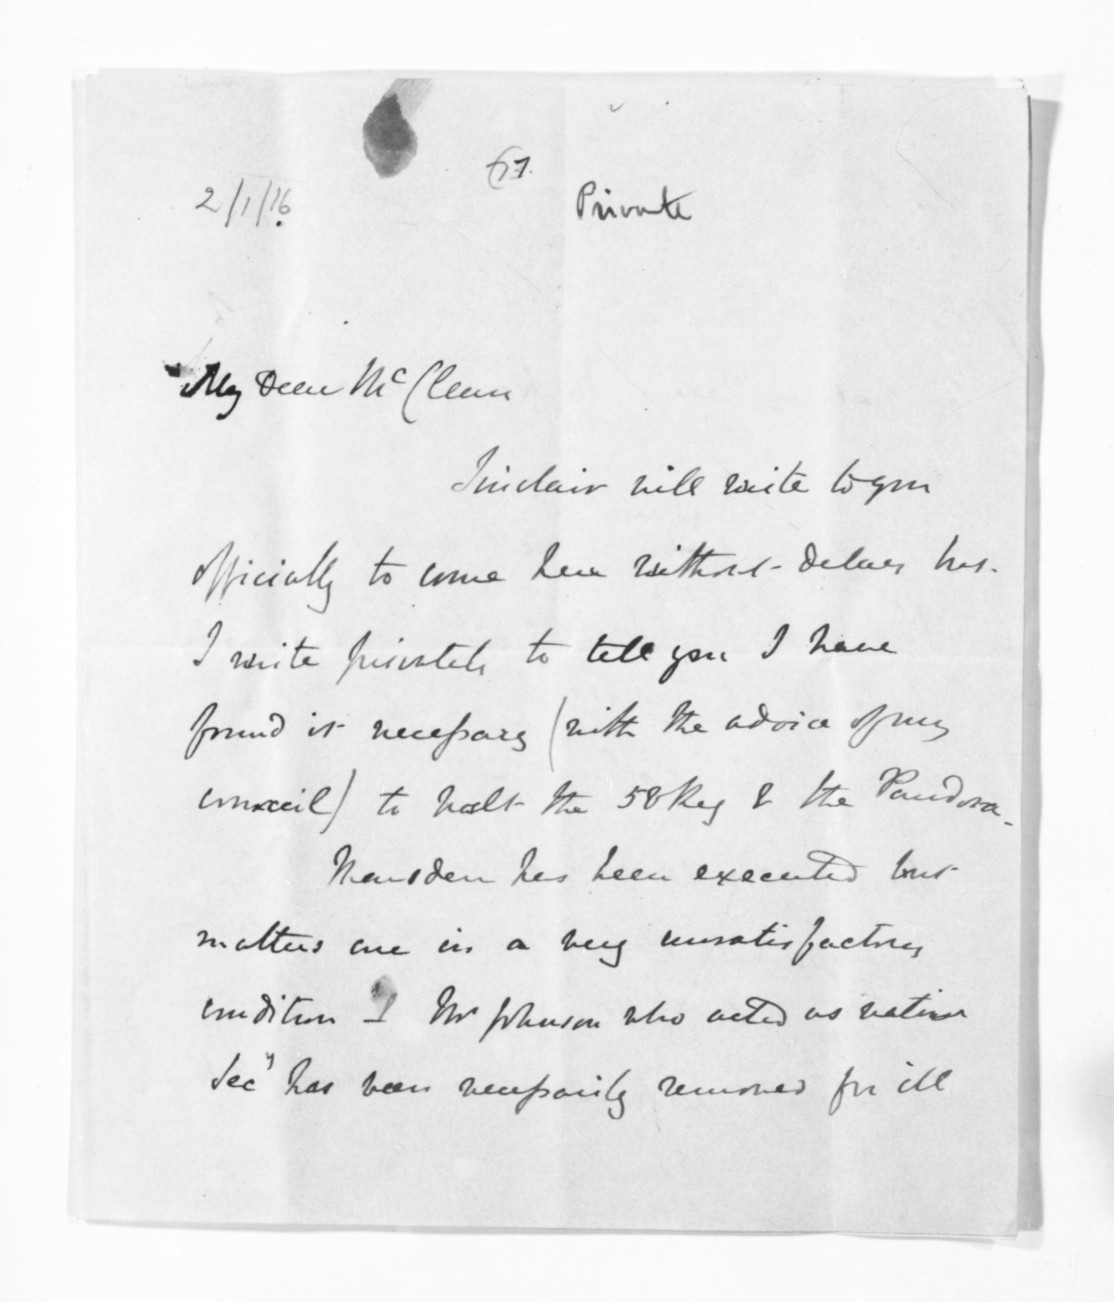 67.
2/1/16
Private
My Dear McClean
Sinclair will write to you
officially to come here without delay but
I write privately to tell you I have
found it necessary (with the advice of my
council) to halt the 58 Reg & the Pandora -
Marsden has been executed but
matters are in a very unsatisfactory
condition I Mr Johnson who acted as native
Secy has been necessarily removed for ill